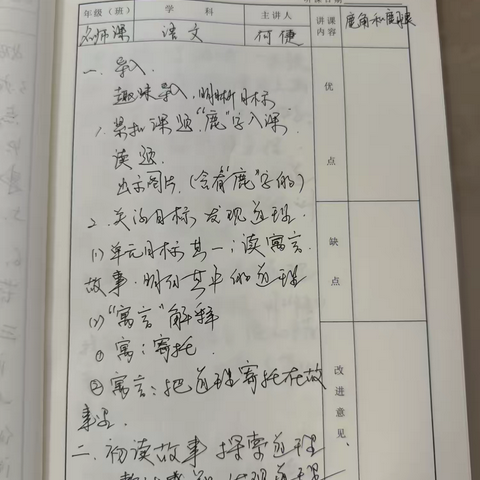 年级（班） 学科 主讲人 讲课内容
名师课 语文 何健 鹿角和鹿腿
一、导入.
趣味导入,明晰目标
1、紧扣课题"鹿"字入课
读题.
出示图片.(含有"鹿"字的)
2、关注目标 发现道理
(1)单元目标其一:读寓言
故事.明白其中的道理
(2)"寓言"解释
①寓:寄托.
②寓言:把道理寄托在故
事里.
二、初读故事 探索道理
优点
缺点
改进意见